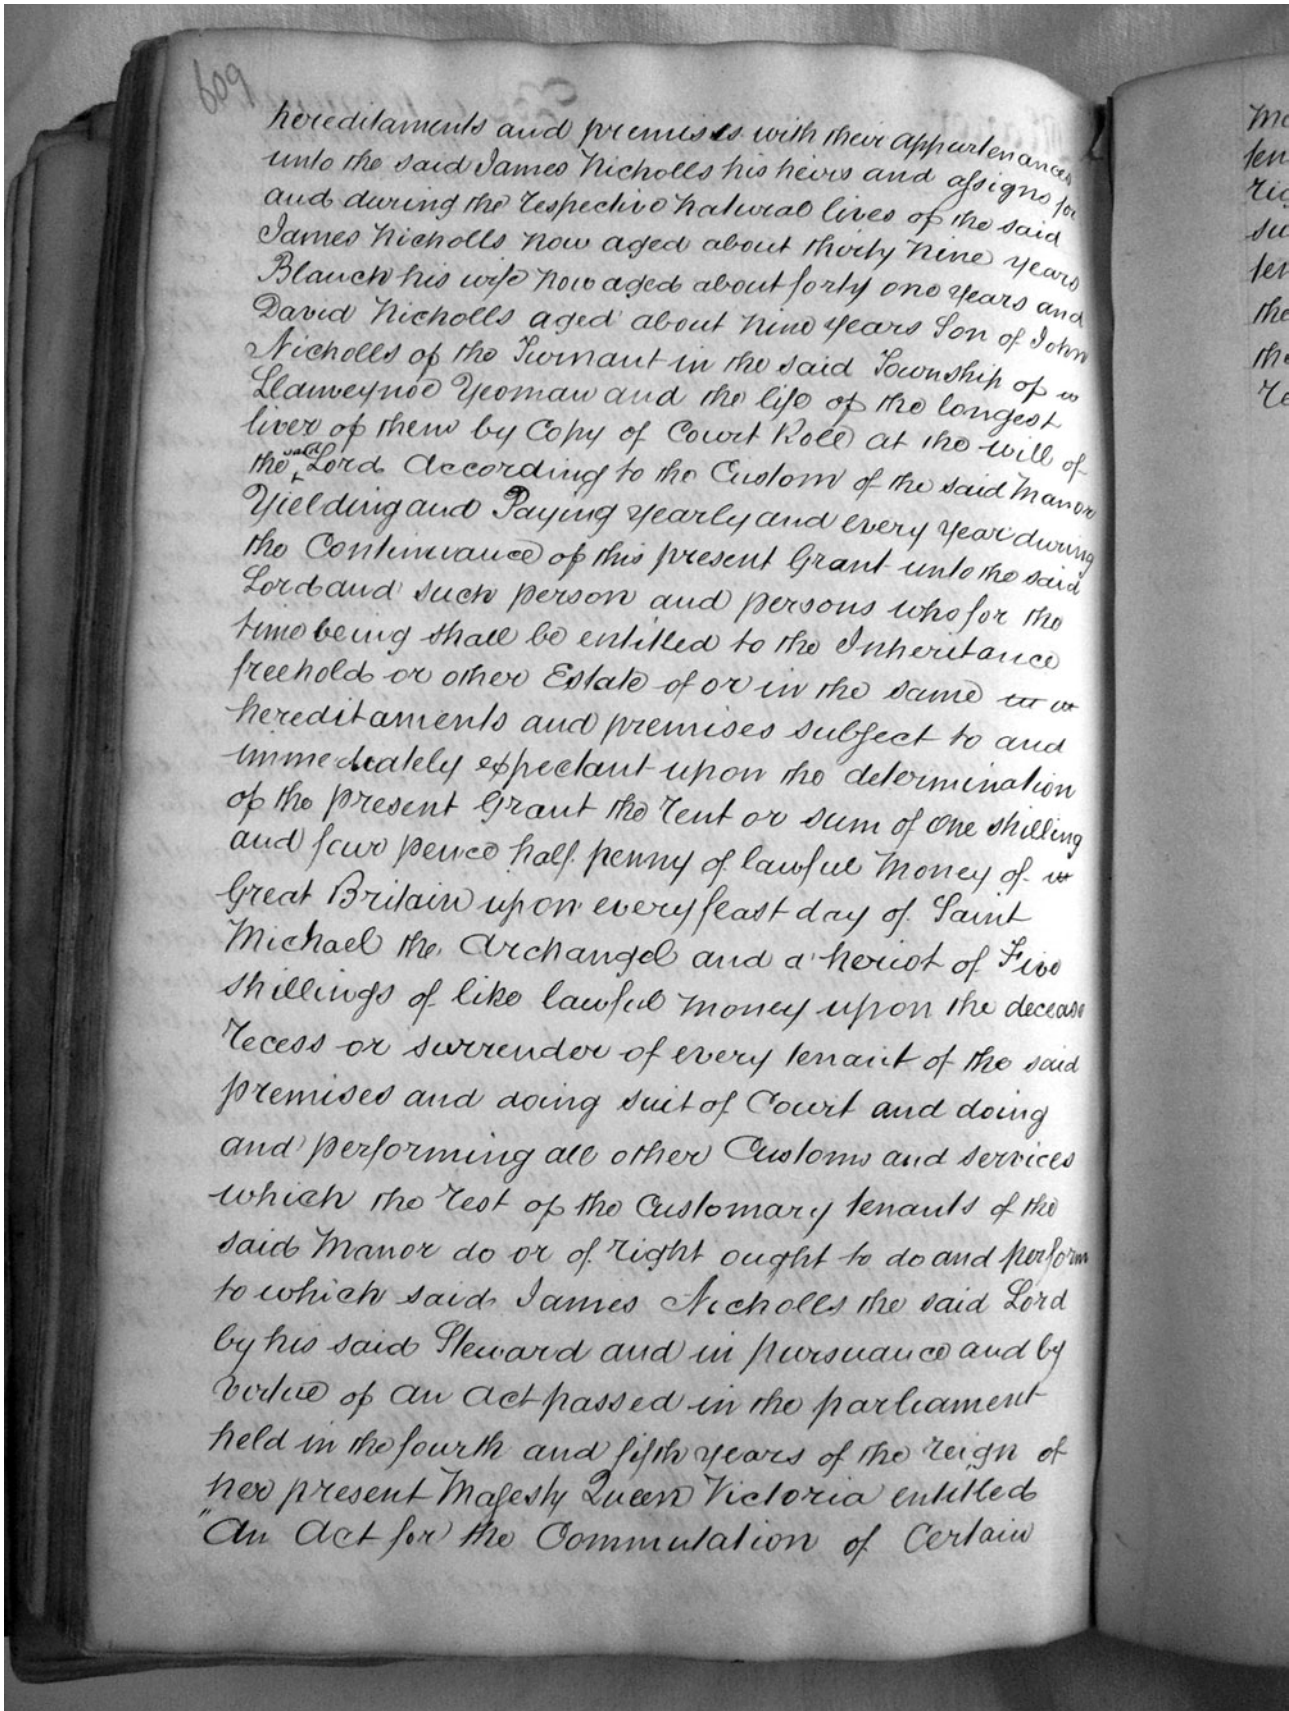 609
hereditaments and premises with their appurtenances
unto the said James Nicholls his heirs and assigns for
and during the respective natural lives of the said
James Nicholls now aged about thirty nine years
Blanch his wife now aged about forty one years and
David Nicholls aged about nine years Son of John
Nicholls of the Turnant in the said Township of
Llanveynoe Yeoman and the life of the longest
liver of them by Copy of Court Roll at the will of
the said Lord According to the Custom of the said Manor
Yielding and Paying yearly and every year during
the Continuance of this present Grant unto the said
Lord and such person and persons who for the
time being shall be entitled to the Inheritance
freehold or other Estate of or in the same
hereditaments and premises subject to and
immediately expectant upon the determination
of the present Grant the rent or sum of one shilling
and four pence half penny of lawful Money of
Great Britain upon every feast day of Saint
Michael the Archangel and a heriot of Five
shillings of like lawful money upon the decease
recess or surrender of every tenant of the said
premises and doing suit of Court and doing
and performing all other Customs and services
which the rest of the Customary tenants of the
said Manor do or of right ought to do and perform
to which said James Nicholls the said Lord
by his said Steward and in pursuance and by
virtue of an Act passed in the parliament
held in the fourth and fifth years of the reign of
her present Majesty Queen Victoria entitled
"An Act for the Commutation of Certain